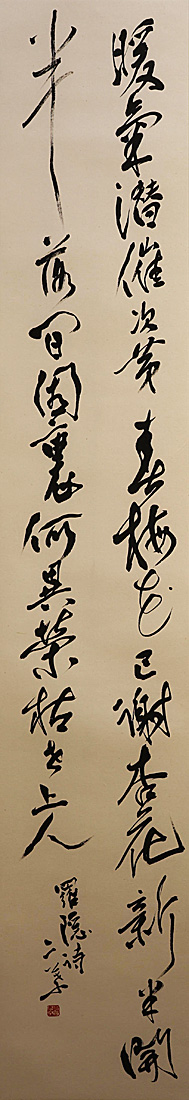 暖氣潛催次第春梅花已謝杏花新半開
半落閒園裏何異榮枯世上人
羅隱詩